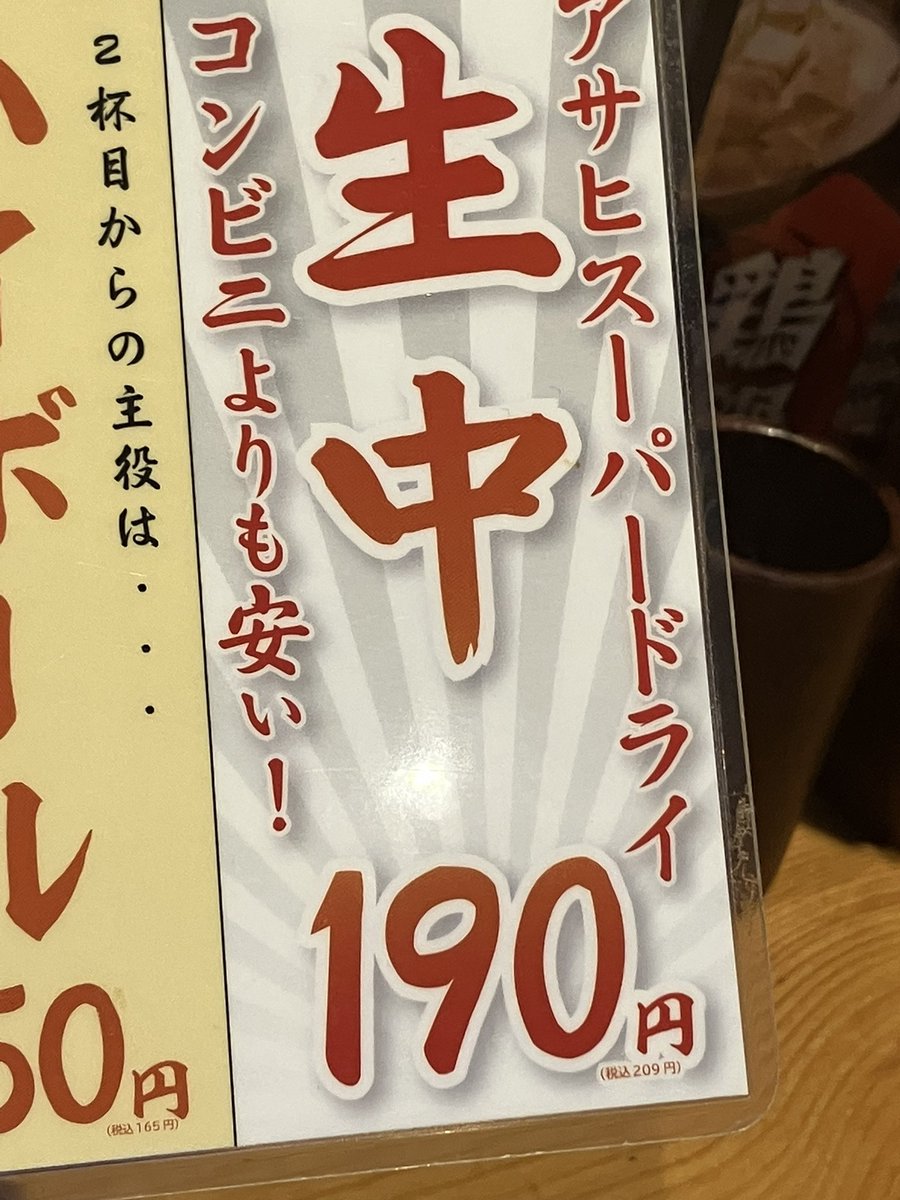 アサヒスーパードライ
生中
コンビニよりも安い！
190円
(税込209円)
2杯目からの主役は・・・
ハイボール
50円
(税込165円)
鶏